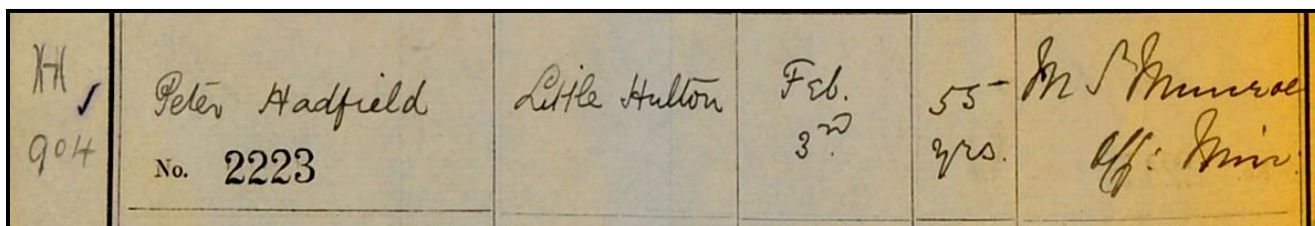 H
904
Peter Hadfield
No. 2223
Little Hulton
Feb.
3rd
55
yrs.
M S Munroe
Off: Min.